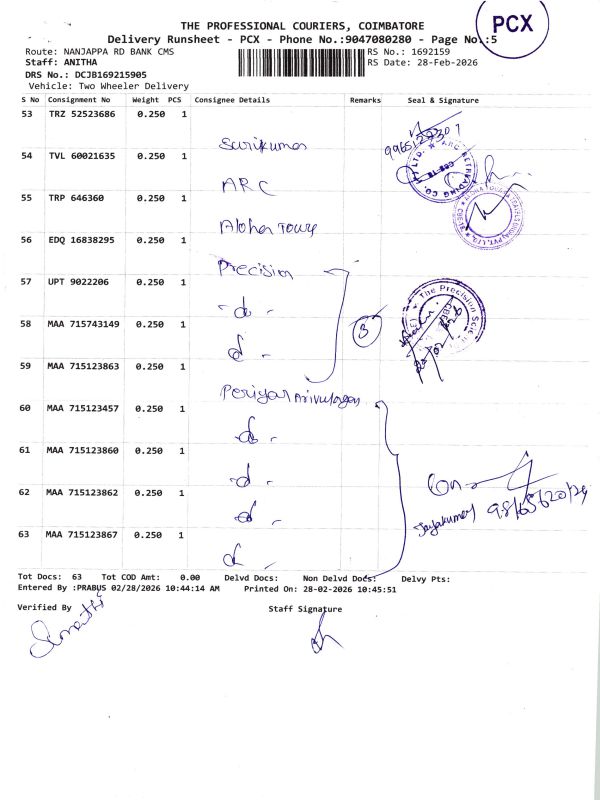 THE PROFESSIONAL COURIERS, COIMBATORE
PCX
Delivery Runsheet - PCX - Phone No.:9047080280 - Page No.:5
Route: NANJAPPA RD BANK CMS
RS No.: 1692159
Staff: ANITHA
RS Date: 28-Feb-2026
DRS No.: DCJB169215905
Vehicle: Two Wheeler Delivery
S No Consignment No Weight PCS Consignee Details Remarks Seal & Signature
53 TRZ 52523686 0.250 1
54 TVL 60021635 0.250 1
ARC
55 TRP 646360 0.250 1
56 EDQ 16838295 0.250 1
Precision
57 UPT 9022206 0.250 1
The Precision
58 MAA 715743149 0.250 1
3
59 MAA 715123863 0.250 1
Periyar
60 MAA 715123457 0.250 1
61 MAA 715123860 0.250 1
62 MAA 715123862 0.250 1
63 MAA 715123867 0.250 1
Tot Docs: 63 Tot COD Amt: 0.00 Delvd Docs: Non Delvd Docs: Delvy Pts:
Entered By :PRABUS 02/28/2026 10:44:14 AM Printed On: 28-02-2026 10:45:51
Verified By Staff Signature